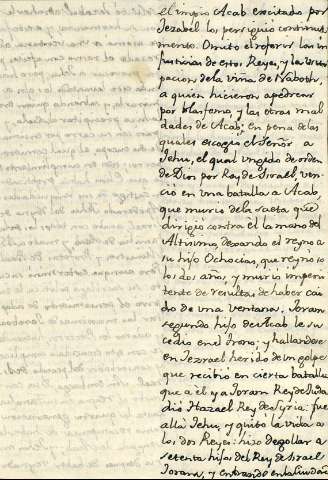 el impio Acab excitado por
Jezabel los persiguió continua
mente. Omito el referir las in
justicias de estos Reyes, y la usur
pacion de la viña de Naboth,
a quien hicieron apedrear
por blasfemo, y las otras mal
dades de Acab, en pena de las
quales escogio el Señor a
Jehu, el qual ungido de orden
de Dios por Rey de Israel, ven
ció en una batalla a Acab,
que murio de la saeta que
dirigio contra el la mano del
Altisimo, dexando el reyno a
su hijo Ochocias, que reyno so
los dos años, y murio impeni
tente de resultas de haber cai
do de una ventana. Joram
segundo hijo de Acab le su
cedio en el trono; y hallandose
en Jezrael herido de un golpe
que recibió en cierta batalla
que a él y a Joram Rey de Juda
dió Hazael Rey de Syria: fue
allá Jehu, y quitó la vida a
los dos Reyes: hizo degollar a
setenta hijos del Rey de Israel
Joram, y entrando en la Ciudad